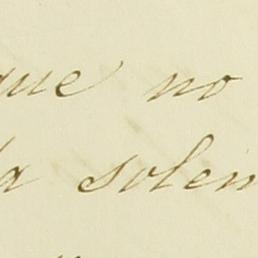 que no
la solem